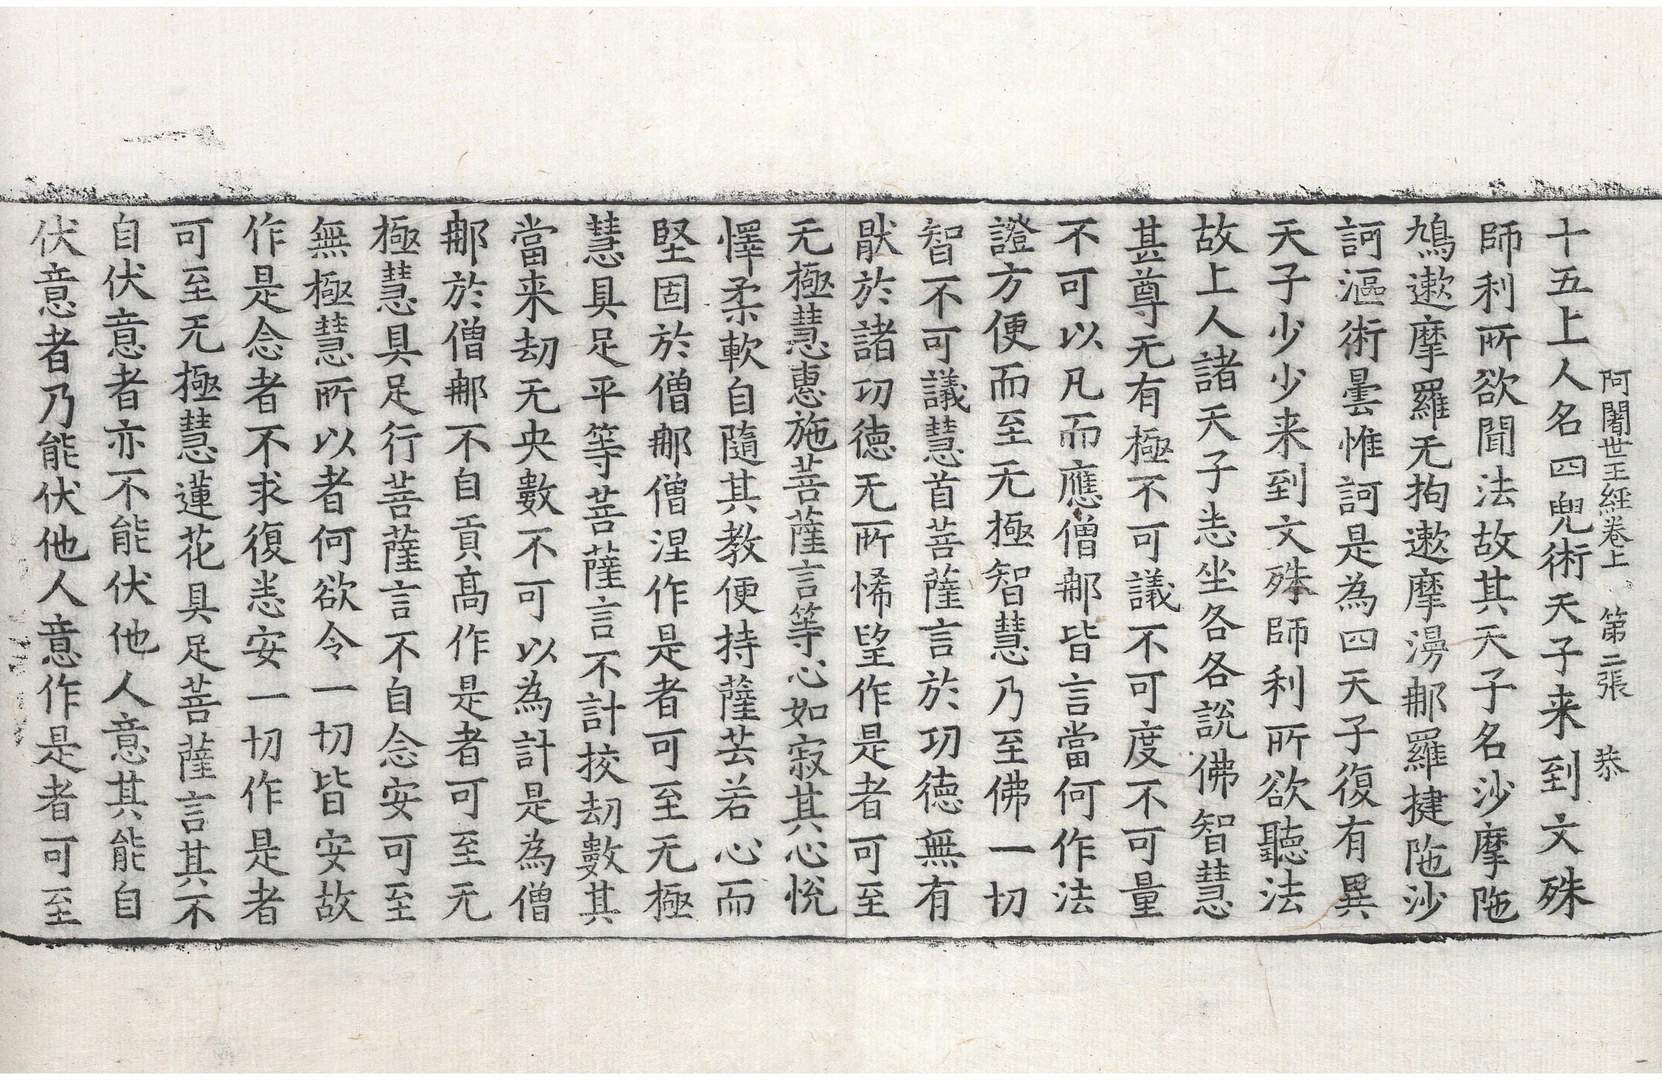 阿闍世王經卷上 第二張 恭
十五上人名四兜術天子来到文殊
師利所欲聞法故其天子名沙摩陁
鳩遬摩羅无拘遬摩澇郍羅揵陁沙
訶漚術曇惟訶是為四天子復有異
天子少少来到文殊師利所欲聽法
故上人諸天子恚坐各各說佛智慧
甚尊无有極不可議不可度不可量
不可以凡而應僧郍皆言當何作法
證方便而至无極智慧乃至佛一切
智不可議慧首菩薩言於功徳無有
猒於諸功徳无所悕望作是者可至
无極慧惠施菩薩言等心如寂其心悅
懌柔軟自隨其教便持薩芸若心而
堅固於僧郍僧涅作是者可至无極
慧具足平等菩薩言不計挍劫數其
當来劫无央數不可以為計是為僧
郍於僧郍不自貢高作是者可至无
極慧具足行菩薩言不自念安可至
無極慧所以者何欲令一切皆安故
作是念者不求復恚安一切作是者
可至无極慧蓮花具足菩薩言其不
自伏意者亦不能伏他人意其能自
伏意者乃能伏他人意作是者可至